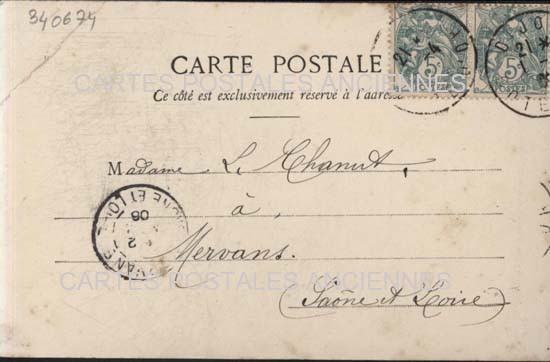 340674
CARTE POSTALE
CARTES POSTALES ANCIENNES
Ce côté est exclusivement réservé à l'adresse
Madame L. Chanut
à
Mervans.
(Saône & Loire)
CARTES POSTALES ANCIENNES
5
5
POSTES
DIJON
21
SAONE ET LOIRE
06